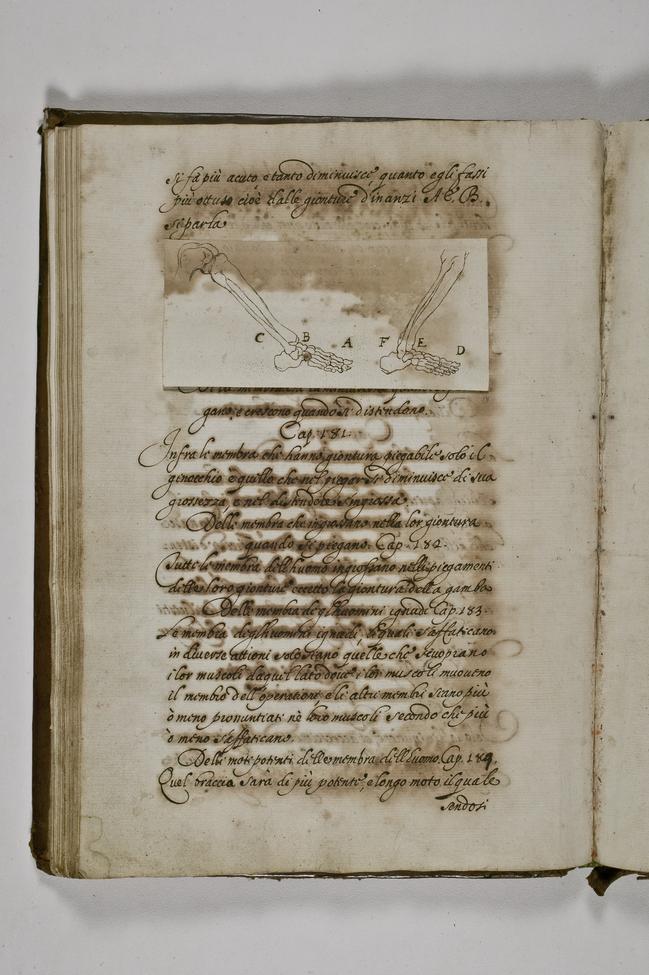 si fa più acuto, e tanto diminuisce quanto egli fassi
più ottuso cioè dalle gionture d'inanzi A C. B.
si parla
C B A F E D
gano, e crescono quando si distendono.
Cap. 181.
Infra le membra che hanno giontura piegabile solo il
ginocchio è quello che nel piegarsi diminuisce di sua
grossezza e nel distendersi ingrossa
Delle membra che ingrossano nella lor giontura
quando si piegano. Cap. 182.
Tutte le membra dell'huomo ingrossano nelli piegamenti
delle loro gionture eccetto la giontura della gamba
Delle membra degl'huomini ignudi Cap. 183.
Le membra degl'huomini ignudi, li quali s'affaticano
in diverse attioni solo siano quelle che scuoprano
i lor muscoli da quel lato dove i lor muscoli muoveno
il membro dell'operatione e li altri membri siano più
ò meno pronuntiati ne loro muscoli secondo che più
ò meno s'affaticano.
Delli moti potenti delle membra dell'huomo. Cap. 184.
Quel braccio sarà di più potente, e longo moto, il quale
sendosi